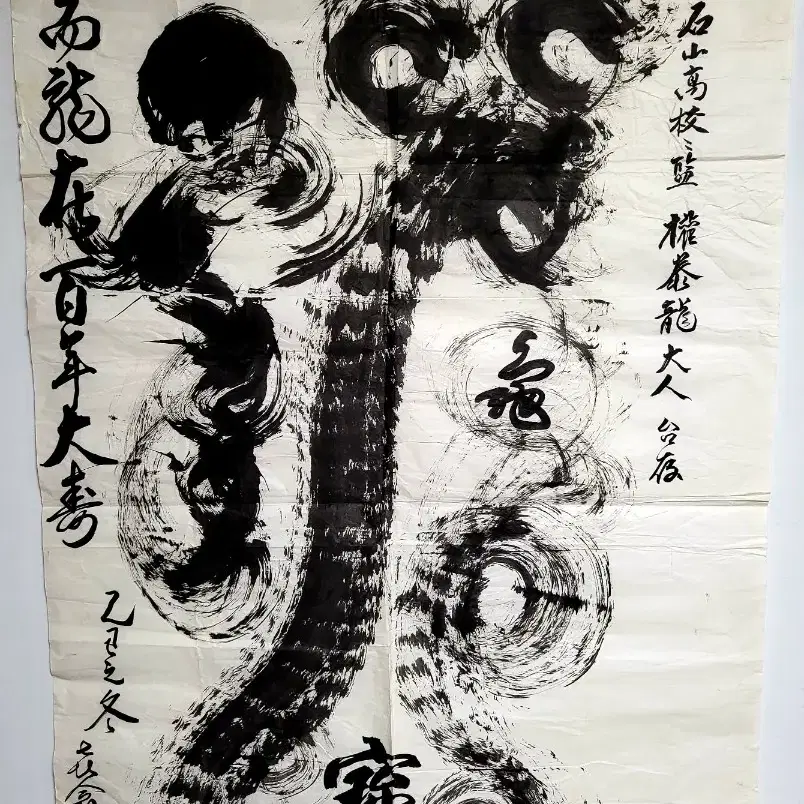 石山高校校監 權泰龍大人 台存
龜
而龍在百年大壽
乙丑之冬